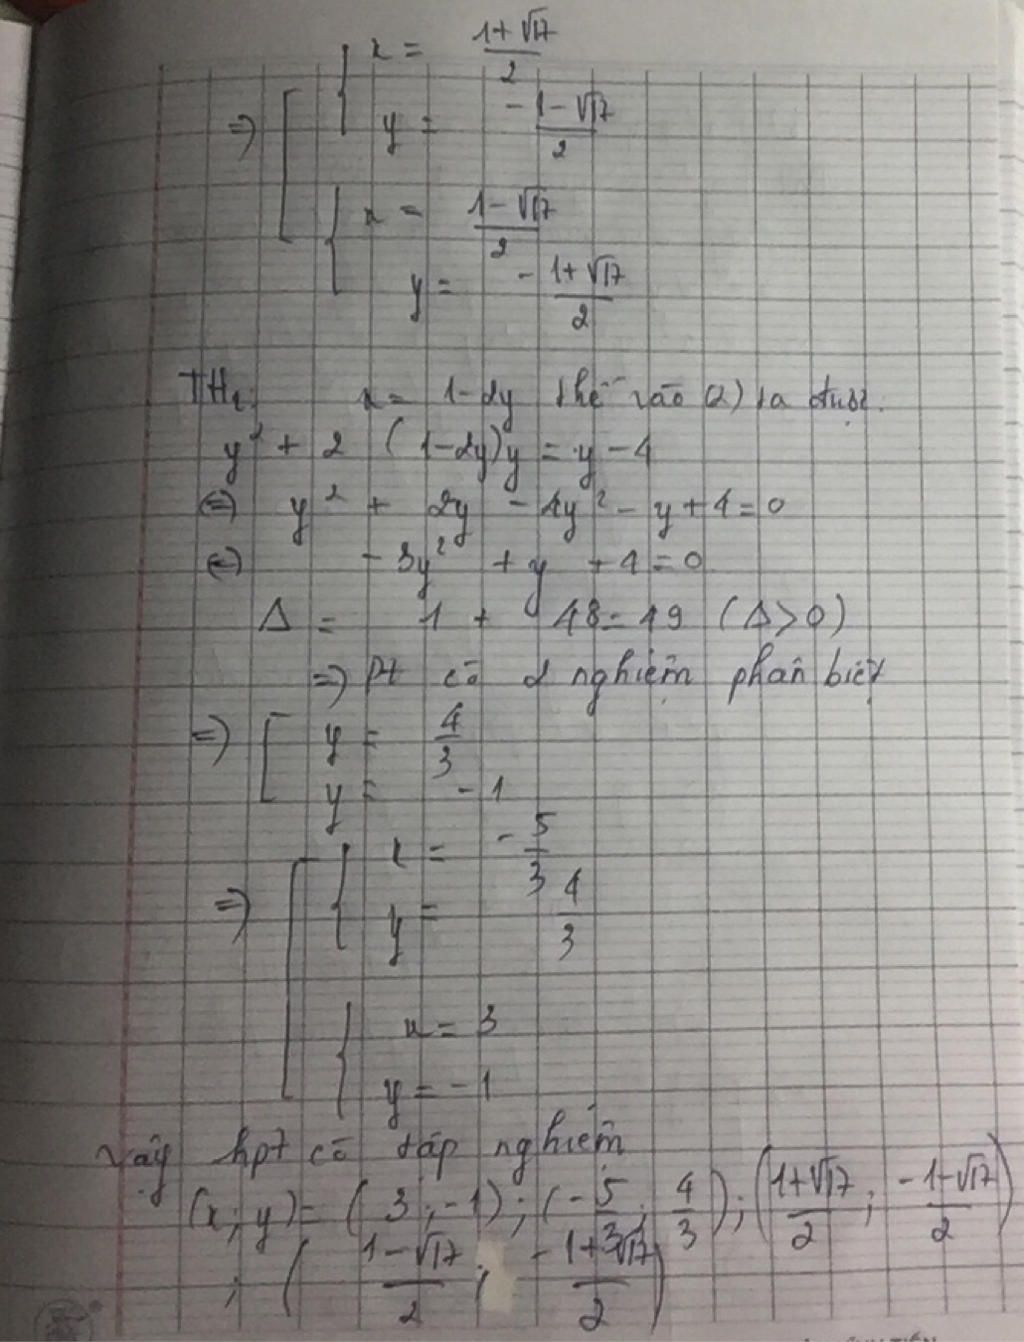 x = \frac{1+\sqrt{17}}{2}
=> y = \frac{-1-\sqrt{17}}{2}
x = \frac{1-\sqrt{17}}{2}
y = \frac{-1+\sqrt{17}}{2}
TH₂: x = 1-2y thế vào (2) ta được.
y² + 2 (1-2y)y = y - 4
<=> y² + 2y - 4y² - y + 4 = 0
<=> -3y² + y + 4 = 0
Δ = 1 + 48 = 49 (Δ > 0)
=> Pt có 2 nghiệm phân biệt
=> y = \frac{4}{3}
y = -1
x = -\frac{5}{3}
=> y = \frac{4}{3}
x = 3
y = -1
Vậy hpt có tập nghiệm
(x; y) = (3; -1); (-\frac{5}{3}; \frac{4}{3}); (\frac{1+\sqrt{17}}{2}; \frac{-1-\sqrt{17}}{2})
; (\frac{1-\sqrt{17}}{2}; \frac{-1+\sqrt{17}}{2})